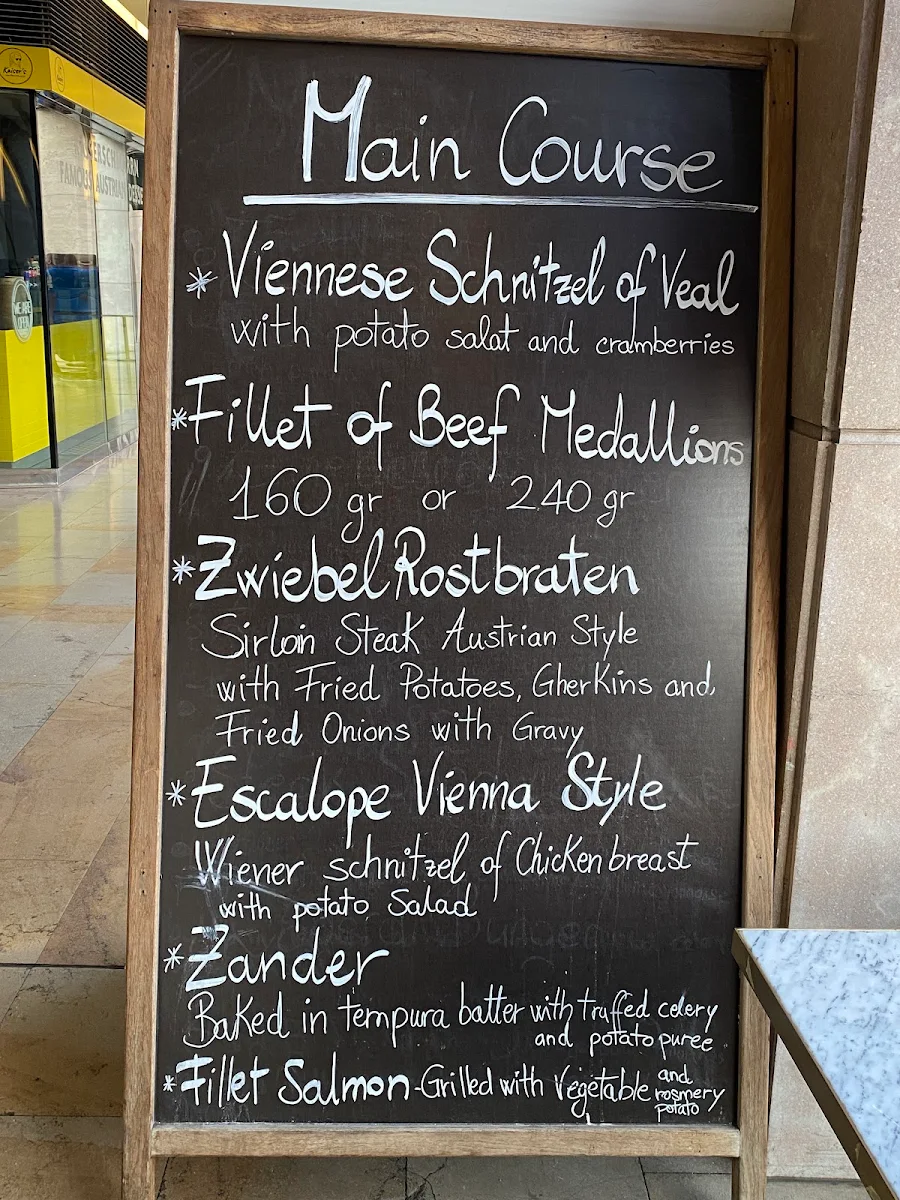 Main Course
* Viennese Schnitzel of Veal
with potato salat and cramberries
* Fillet of Beef Medallions
160 gr or 240 gr
* ZwiebelRostbraten
Sirloin Steak Austrian Style
with Fried Potatoes, Gherkins and
Fried Onions with Gravy
* Escalope Vienna Style
Wiener schnitzel of Chicken breast
with potato Salad
* Zander
Baked in tempura batter with truffed celery
and potato puree
* Fillet Salmon - Grilled with Vegetable and
rosmery
potato
Kaiser's
WE ARE
OPEN